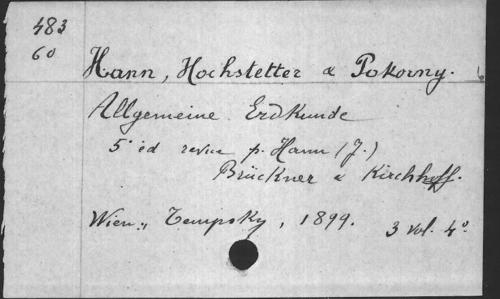 483
60
Hann, Hochstetter & Pokorny.
Allgemeine Erdkunde
5° éd revue p. Hann (J.)
Brückner & Kirchhoff.
Wien., Tempsky, 1899. 3 vol. 4°